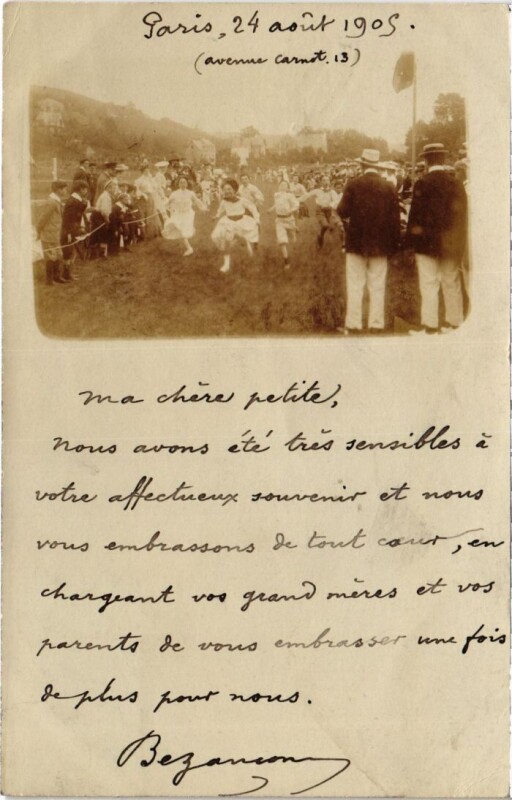 Paris, 24 août 1905.
(avenue Carnot. 13)
Ma chère petite,
Nous avons été très sensibles à
votre affectueux souvenir et nous
vous embrassons de tout cœur, en
chargeant vos grand mères et vos
parents de vous embrasser une fois
de plus pour nous.
Bezançon